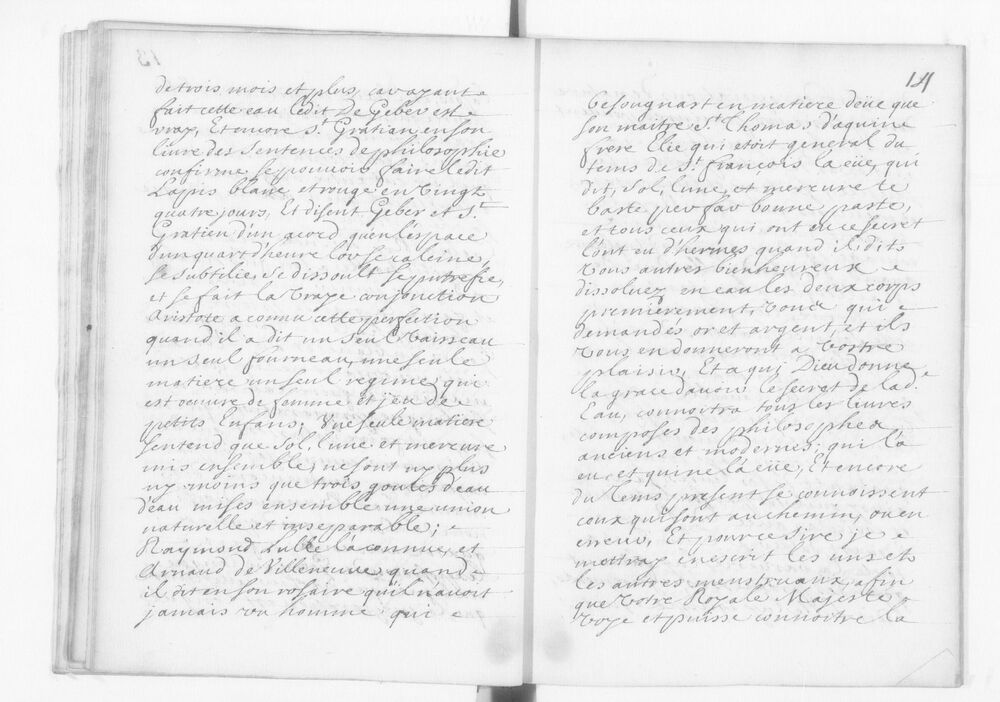 13
de trois mois et plus, car ayant
fait cette eau ledit de Geber est
vray, Et encore St. Gratian en son
livre des sentences de philosophie
confirme se pouvoir faire ledit
Lapis blanc et rouge en vingt
quatre jours, Et disent Geber et St.
Gratien d'un acord qu'en l'espace
d'un quart d'heure l'or se calcine,
se subtilie, se dissoult se putrefie,
et se fait la vraye conjonction
Aristote a connu cette perfection
quand il a dit un seul vaisseau
un seul fourneau, une seule
matiere un seul regime, qui
est oeuvre de femme et jeu de
petits Enfans; Une seule matiere
s'entend que Sol, lune et mercure
mis ensemble, ne sont ny plus
ny moins que trois goutes d'eau
d'eau mises ensemble une union
naturelle et inseparable;
Raymond Lulle l'a connue, et
Arnaud de Villeneuve, quand
il dit en son rosaire qu'il n'avoit
jamais vu homme qui
14
besougnast en matiere deüe que
son maitre St. Thomas d'aquin
frere Elie qui etoit general du
tems de St. françois la eüe, qui
dit, Sol, lune, et mercure te
baste per far bonne paste,
et tous ceux qui ont eu ce secret
l'ont eu d'hermes quand il idit
vous autres bienheureux
dissoluez en eau les deux corps
premierement, vous qui
demandés or et argent, et ils
vous en donneront a vostre
plaisir, Et a qui Dieu donne
la grace d'avoir le secret de lad.
Eau, connoitra tous les livres
composes des philosophes
anciens et modernes, qui l'a
eu, et qui ne l'a eüe, Et encore
du tems present se connoissent
ceux qui sont au chemin, ou en
erreur, Et pour ce Sire je
mettray en escrit les uns et
les autres menstruaux, afin
que votre Royale Majesté
voye et puisse connoitre la